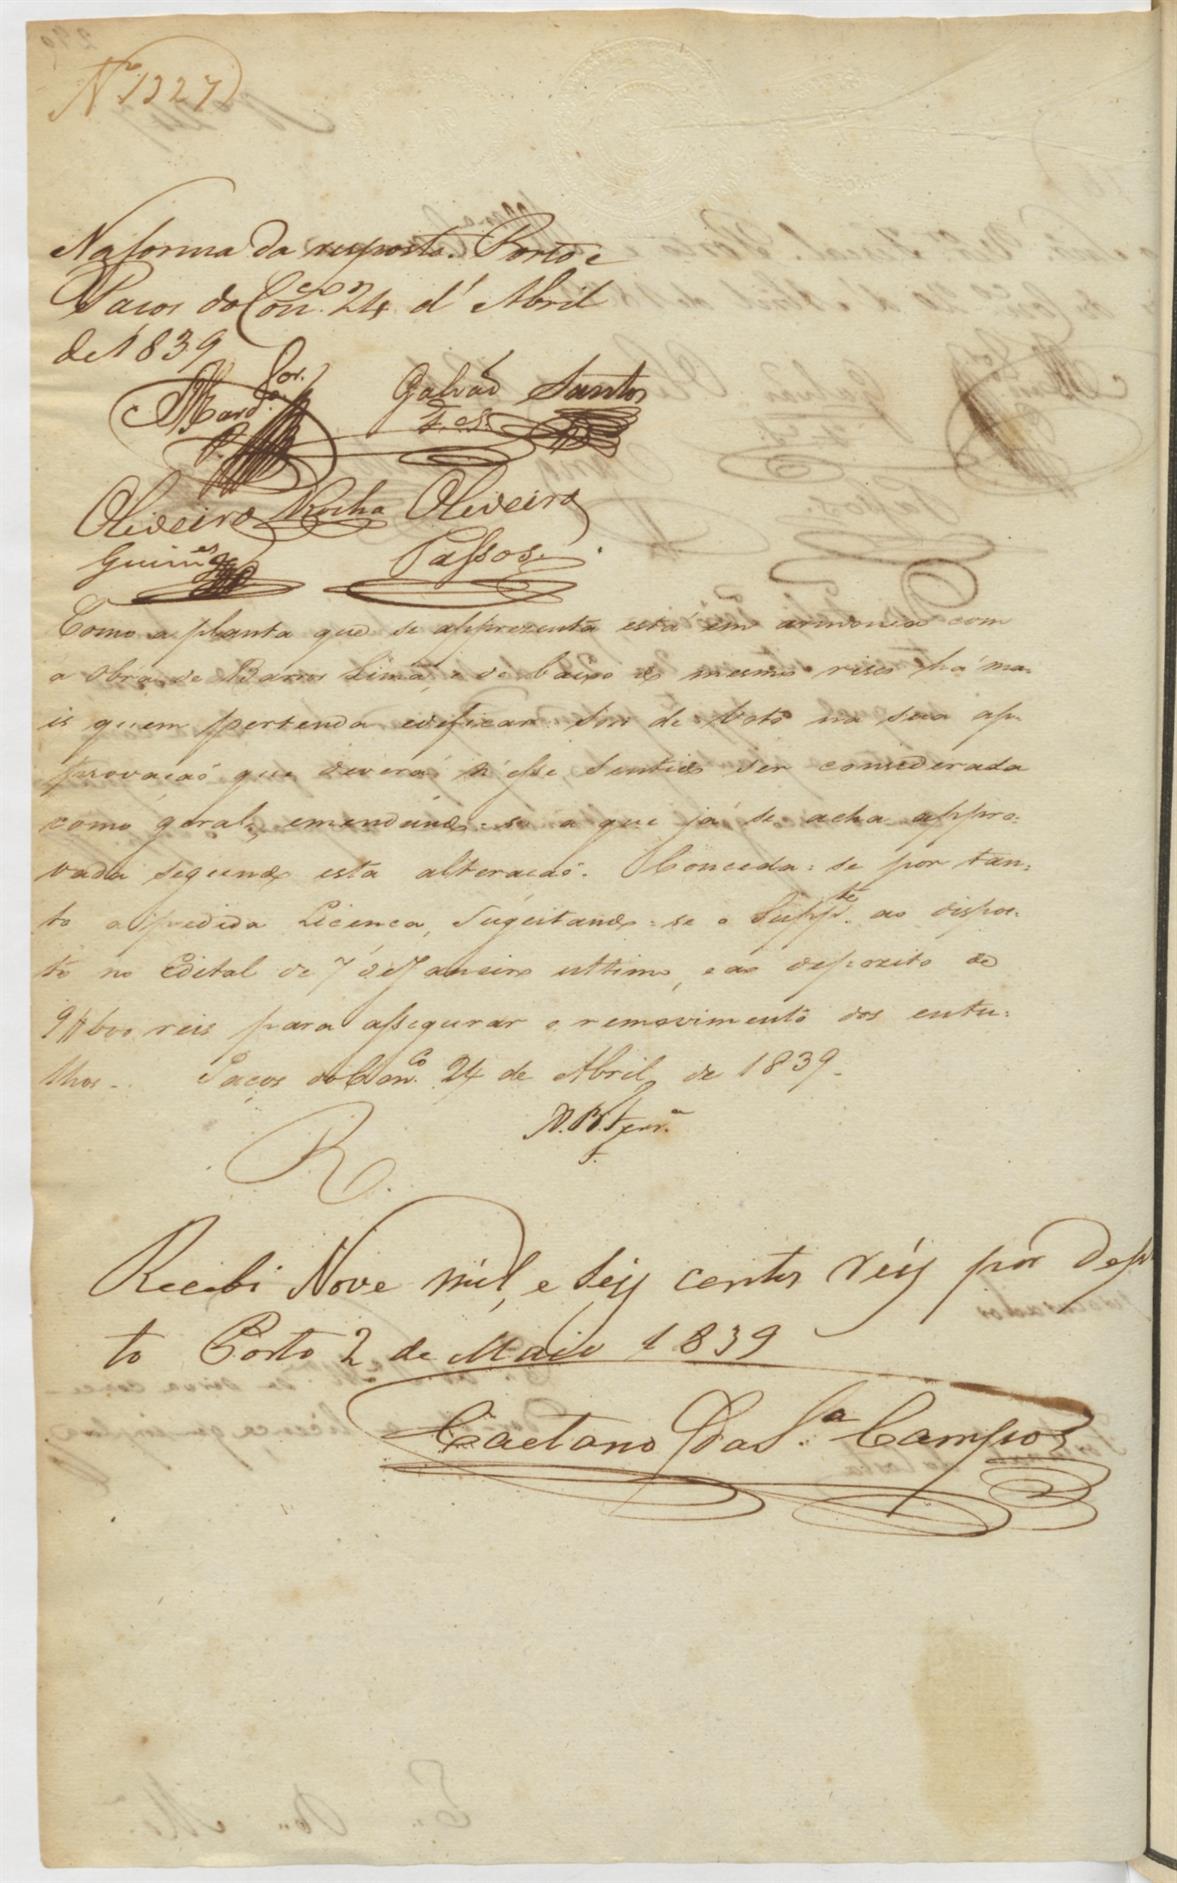 Nº 1327
Na forma da resposta. Porto e
Paços do Con.co em 24 d'Abril
de 1839
Galvão Santos
Oliveira Rocha Oliveira
Guim.es Passos
Como a planta que se apprezenta está em armonia com
a obra de Barros Lima, e de baixo do mesmo risco há ma-
is quem pertenda edificar. Sou de voto na sua ap-
provação que deverá n'esse sentido ser considerada
como geral, emendando-se a que já se acha appro-
vada segundo esta alteração. Conceda-se por tan-
to a pedida Licença, sugeitando-se o Supp.te ao dispos-
to no Edital de 7 de Janeiro ultimo, e ao depozito de
9#600 reis para assegurar o removimento dos entu-
lhos. Paços do Con.co 24 de Abril de 1839.
R.
Recebi Nove mil, e seis centos réis por Depi
to Porto 2 de Maio 1839
Caetano da S.a Campos